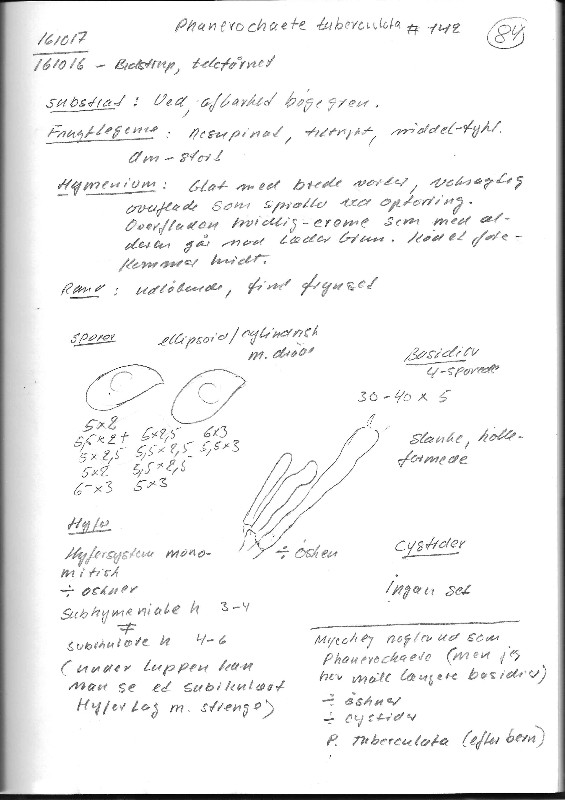 161017
Phanerochaete tuberculata # 142
84
161016 - Bidstrup, teletårnet
Substrat: Ved, afbarket bøgegren.
Frugtlegeme: Resupinat, tiltrykt, middel-tykt.
dm-stort
Hymenium: Glat med brede vorter, voksagtig
overflade som sprækker ved optørring.
Overfladen hvidlig-creme som med al-
deren går mod læderbrun. Kødet fore-
kommer hvidt.
Rand: udløbende, fint frynset
Sporer
ellipsoid/cylindrisk
m. dråbe
Basidier
4-sporede
30-40 x 5
5x2
5,5x2+ 5x2,5 6x3
5x2,5 5,5x2,5 5,5x3
5x2 5,5x2,5
6-x3 5x3
Slanke, kølle-
formede
÷ øsken
Hyfer
Hyfersystem mono-
mitisk
÷ øskner
Subhymeniale h 3-4
≠
Subikulære h 4-6
(under luppen kan
man se et subikulært
Hyferlag m. strenge)
Cystider
Ingen set
Mycokey nøgle ud som
Phanerochaete (men jeg
har målt længere basidier)
÷ øskner
÷ cystider
P. Tuberculata (efter bern)